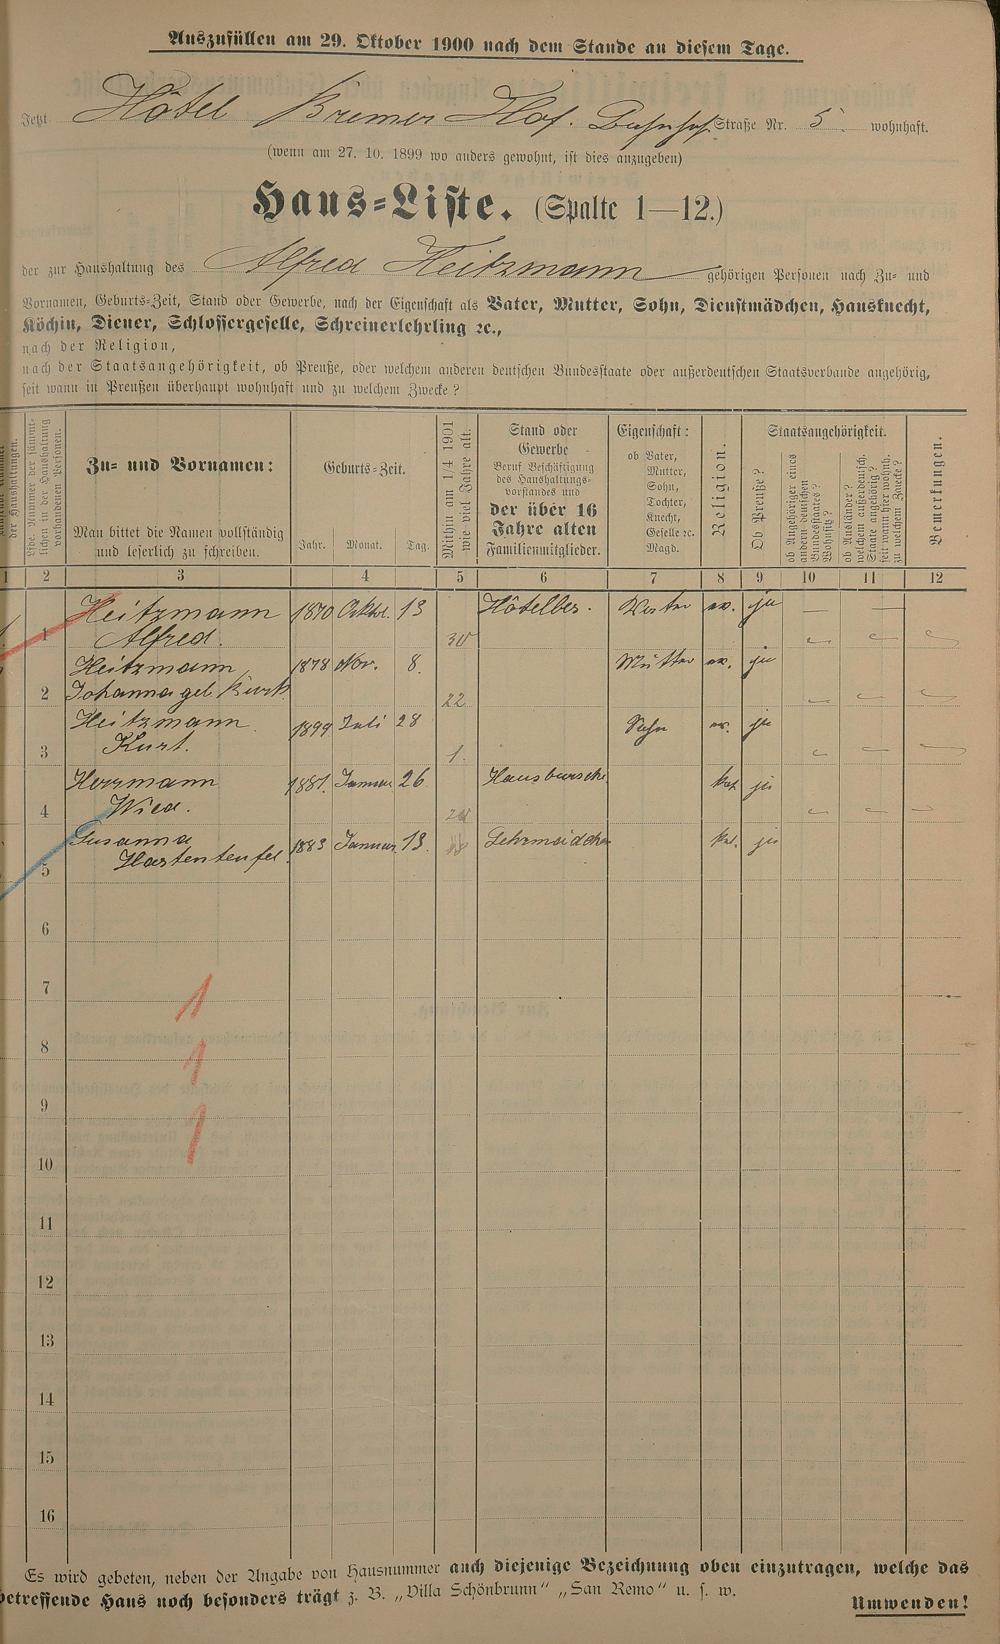 Auszufüllen am 29. Oktober 1900 nach dem Stande an diesem Tage.
Jetzt Hôtel Bremer Hof. Bahnhof Straße Nr. 5. wohnhaft.
(wenn am 27. 10. 1899 wo anders gewohnt, ist dies anzugeben)
Haus-Liste. (Spalte 1—12.)
der zur Haushaltung des Alfred Heitzmann gehörigen Personen nach Zu- und
Vornamen, Geburts-Zeit, Stand oder Gewerbe, nach der Eigenschaft als Vater, Mutter, Sohn, Dienstmädchen, Hausknecht,
Köchin, Diener, Schlossergeselle, Schreinerlehrling ꝛc.,
nach der Religion,
nach der Staatsangehörigkeit, ob Preuße, oder welchem anderen deutschen Bundesstaate oder außerdeutschen Staatsverbande angehörig,
seit wann in Preußen überhaupt wohnhaft und zu welchem Zwecke?
der Haushaltungen.
Lfde. Nummer der sämmt-
lichen in der Haushaltung
vorhandenen Personen.
Zu- und Vornamen:
Man bittet die Namen vollständig
und leserlich zu schreiben.
Geburts-Zeit.
Jahr. Monat. Tag.
Mithin am 1/4 1901
wie viel Jahre alt.
Stand oder
Gewerbe
Beruf Beschäftigung
des Haushaltungs-
vorstandes und
der über 16
Jahre alten
Familienmitglieder.
Eigenschaft:
ob Vater,
Mutter,
Sohn,
Tochter,
Knecht,
Geselle ꝛc.
Magd.
Religion.
Staatsangehörigkeit.
Ob Preuße?
ob Angehöriger eines
andern deutschen
Bundesstaates?
Wohnsitz?
ob Ausländer?
welchem außerdeutsch.
Staate angehörig?
seit wann hier wohnh.
zu welchem Zwecke?
Bemerkungen.
1 2 3 4 5 6 7 8 9 10 11 12
Heitzmann 1870 Oktbr. 13 Hôtelbes. Vater ev. ja — —
1 Alfred. 30
Heitzmann 1878 Nov. 8. Mutter ev. ja
2 Johanna geb. 22
Heitzmann 1899 Juli 28 Sohn ev. ja
3 Kurt. 1.
Herrmann 1881. Januar 26 Hausbursche kat. ja
4 Wied.
Susanna 1883 Januar 13. Lehrmädchen kat. ja
5 Hastenteufel.
6
7
8
9
10
11
12
13
14
15
16
1
1
1
Es wird gebeten, neben der Angabe von Hausnummer auch diejenige Bezeichnung oben einzutragen, welche das
betreffende Haus noch besonders trägt z. B. „Villa Schönbrunn“ „San Remo“ u. s. w.
Umwenden!